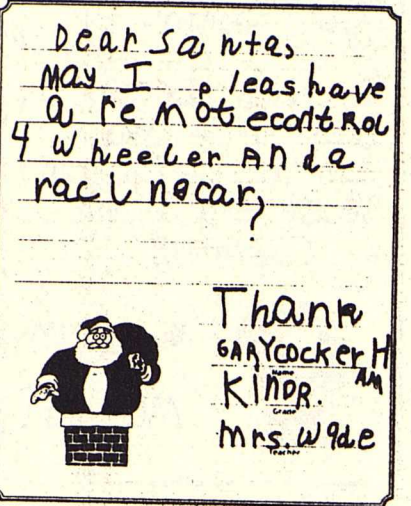 Dear Santa,
May I pleas have
a remot econtRol
4 wheeler And a
raciNgcar,
?
Thank
GARYcockerH
AM
Name
KINDR.
Grade
Mrs. Wade
Teacher